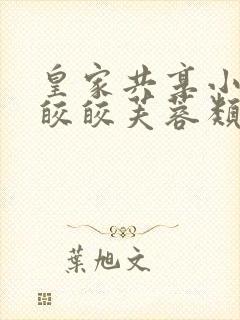 皇家共享小
皎皎芙蓉類
葉旭文